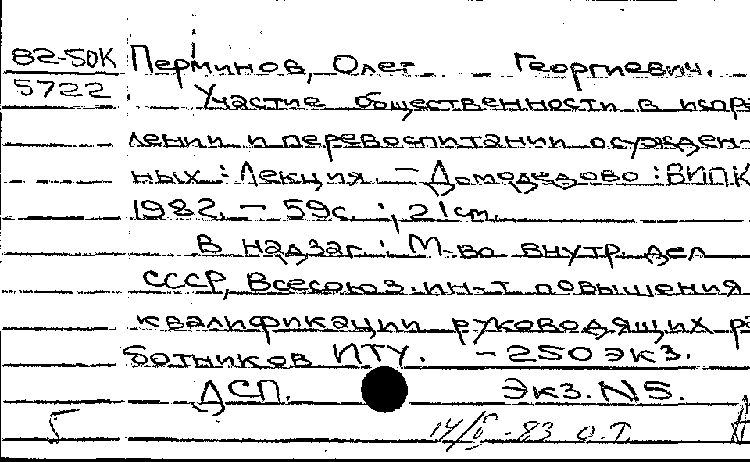 82-50К Перминов, Олег Георгиевич.
5722 Участие общественности в испр
лении и перевоспитании осужден-
ных : Лекция. — Домодедово : ВИПК
1982. — 59с. ; 21см.
В надзаг. : М-во внутр. дел
СССР, Всесоюз. ин-т повышения
квалификации руководящих ра
ботников ИТУ. — 250 экз.
ДСП. Экз. N5.
14/ -83 О.Т.